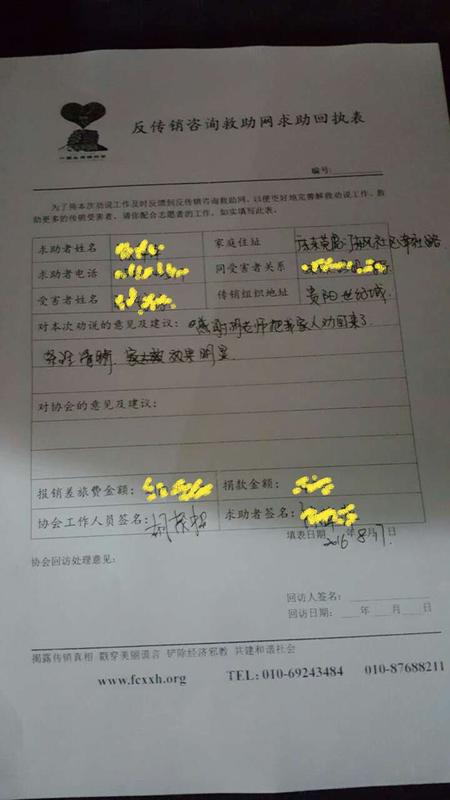 反传销咨询救助网求助回执表
编号:
为了将本次劝说工作及时反馈到反传销咨询救助网,以便更好地完善解救劝说工作、救
助更多的传销受害者,请你配合志愿者的工作,如实填写此表。
求助者姓名 家庭住址
求助者电话 同受害者关系
受害者姓名 传销组织地址 贵阳世纪城
对本次劝说的意见及建议: 感谢胡老师把我家人劝回来了
条理清晰 效果明显
对协会的意见及建议:
报销差旅费金额: 捐款金额:
协会工作人员签名: 求助者签名:
填表日期 2016年8月17日
协会回访处理意见:
回访人签名:
回访日期: 年 月 日
揭露传销真相 戳穿美丽谎言 铲除经济邪教 共建和谐社会
www.fcxxh.org TEL: 010-69243484 010-87688211